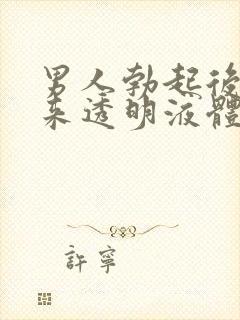 男人勃起後
來透明液體
許寧